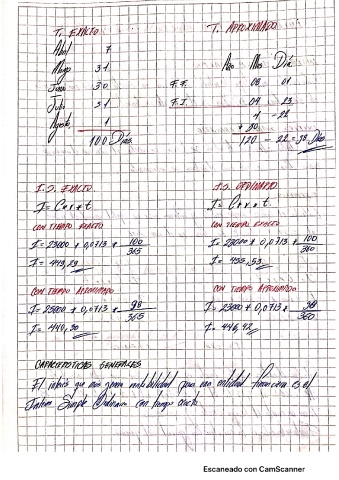 T. EXACTO
Abril 7
Mayo 31
Junio 30
Julio 31
Agosto 1
100 Días
T. APROXIMADO
Año Mes Día
F.F. 08 01
F.I. 04 23
4 -22
* 30
120 - 22 = 98 Días
I.S. EXACTO
I = C * r * t
CON TIEMPO EXACTO
I = 23000 * 0,0713 * 100/365
I = 449,29
CON TIEMPO APROXIMADO
I = 23000 * 0,0713 * 98/365
I = 440,30
I.S. ORDINARIO
I = C * r * t
CON TIEMPO EXACTO
I = 23000 * 0,0713 * 100/360
I = 455,53
CON TIEMPO APROXIMADO
I = 23000 * 0,0713 * 98/360
I = 446,42
CARACTERISTICAS GENERALES
El interés que más genera rentabilidad para una entidad financiera es el
Interes Simple Ordinario con tiempo exacto.
Escaneado con CamScanner